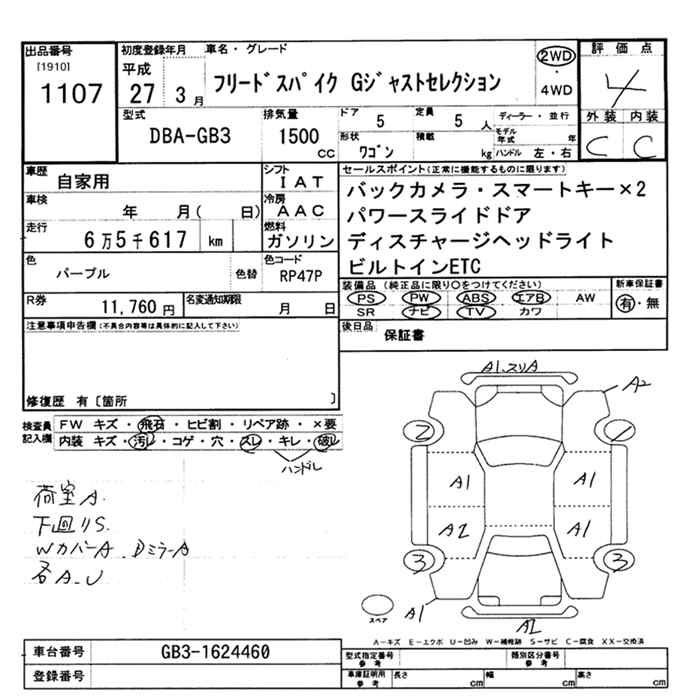 出品番号 初度登録年月 車名・グレード 評価点
[1910] 平成 2WD
1107 27 3月 フリードスパイク Gジャストセレクション ・ 4
4WD
型式 排気量 ドア 5 定員 5人 ディーラー・並行 外装 内装
DBA-GB3 1500cc 形状 ワゴン 積載 kg モデル年式 年 C C
ハンドル 左・右
車歴 自家用 シフト IAT セールスポイント(正常に機能するものに限ります)
車検 年 月( 日) 冷房 AAC バックカメラ・スマートキー×2
走行 6万5千617 km 燃料 ガソリン パワースライドドア
ディスチャージヘッドライト
色 パープル 色替 色コード RP47P ビルトインETC
装備品(純正品に限り○をつけてください) 新車保証書
R券 11,760円 名変通知期限 月 日 PS PW ABS エアB AW 有・無
SR ナビ TV カワ
注意事項申告欄(不具合内容等は具体的に記入して下さい) 後日品 保証書
修復歴 有〔箇所 〕
検査員記入欄 FW キズ・飛石・ヒビ割・リペア跡・×要
内装 キズ・汚れ・コゲ・穴・スレ・キレ・破れ
ハンドル
荷室A.
下回りS.
WカバーA.DミラーA
各A.U
A1.スリA
A2
2
A1 A1
A2 A1
3 3
スペア
A1
A2
A-キズ E-エクボ U-凹み W-補修跡 S-サビ C-腐食 XX-交換済
車台番号 GB3-1624460 型式指定番号 参考 類別区分番号 参考
登録番号 車庫証明用 参考 長さ cm 幅 cm 高さ cm